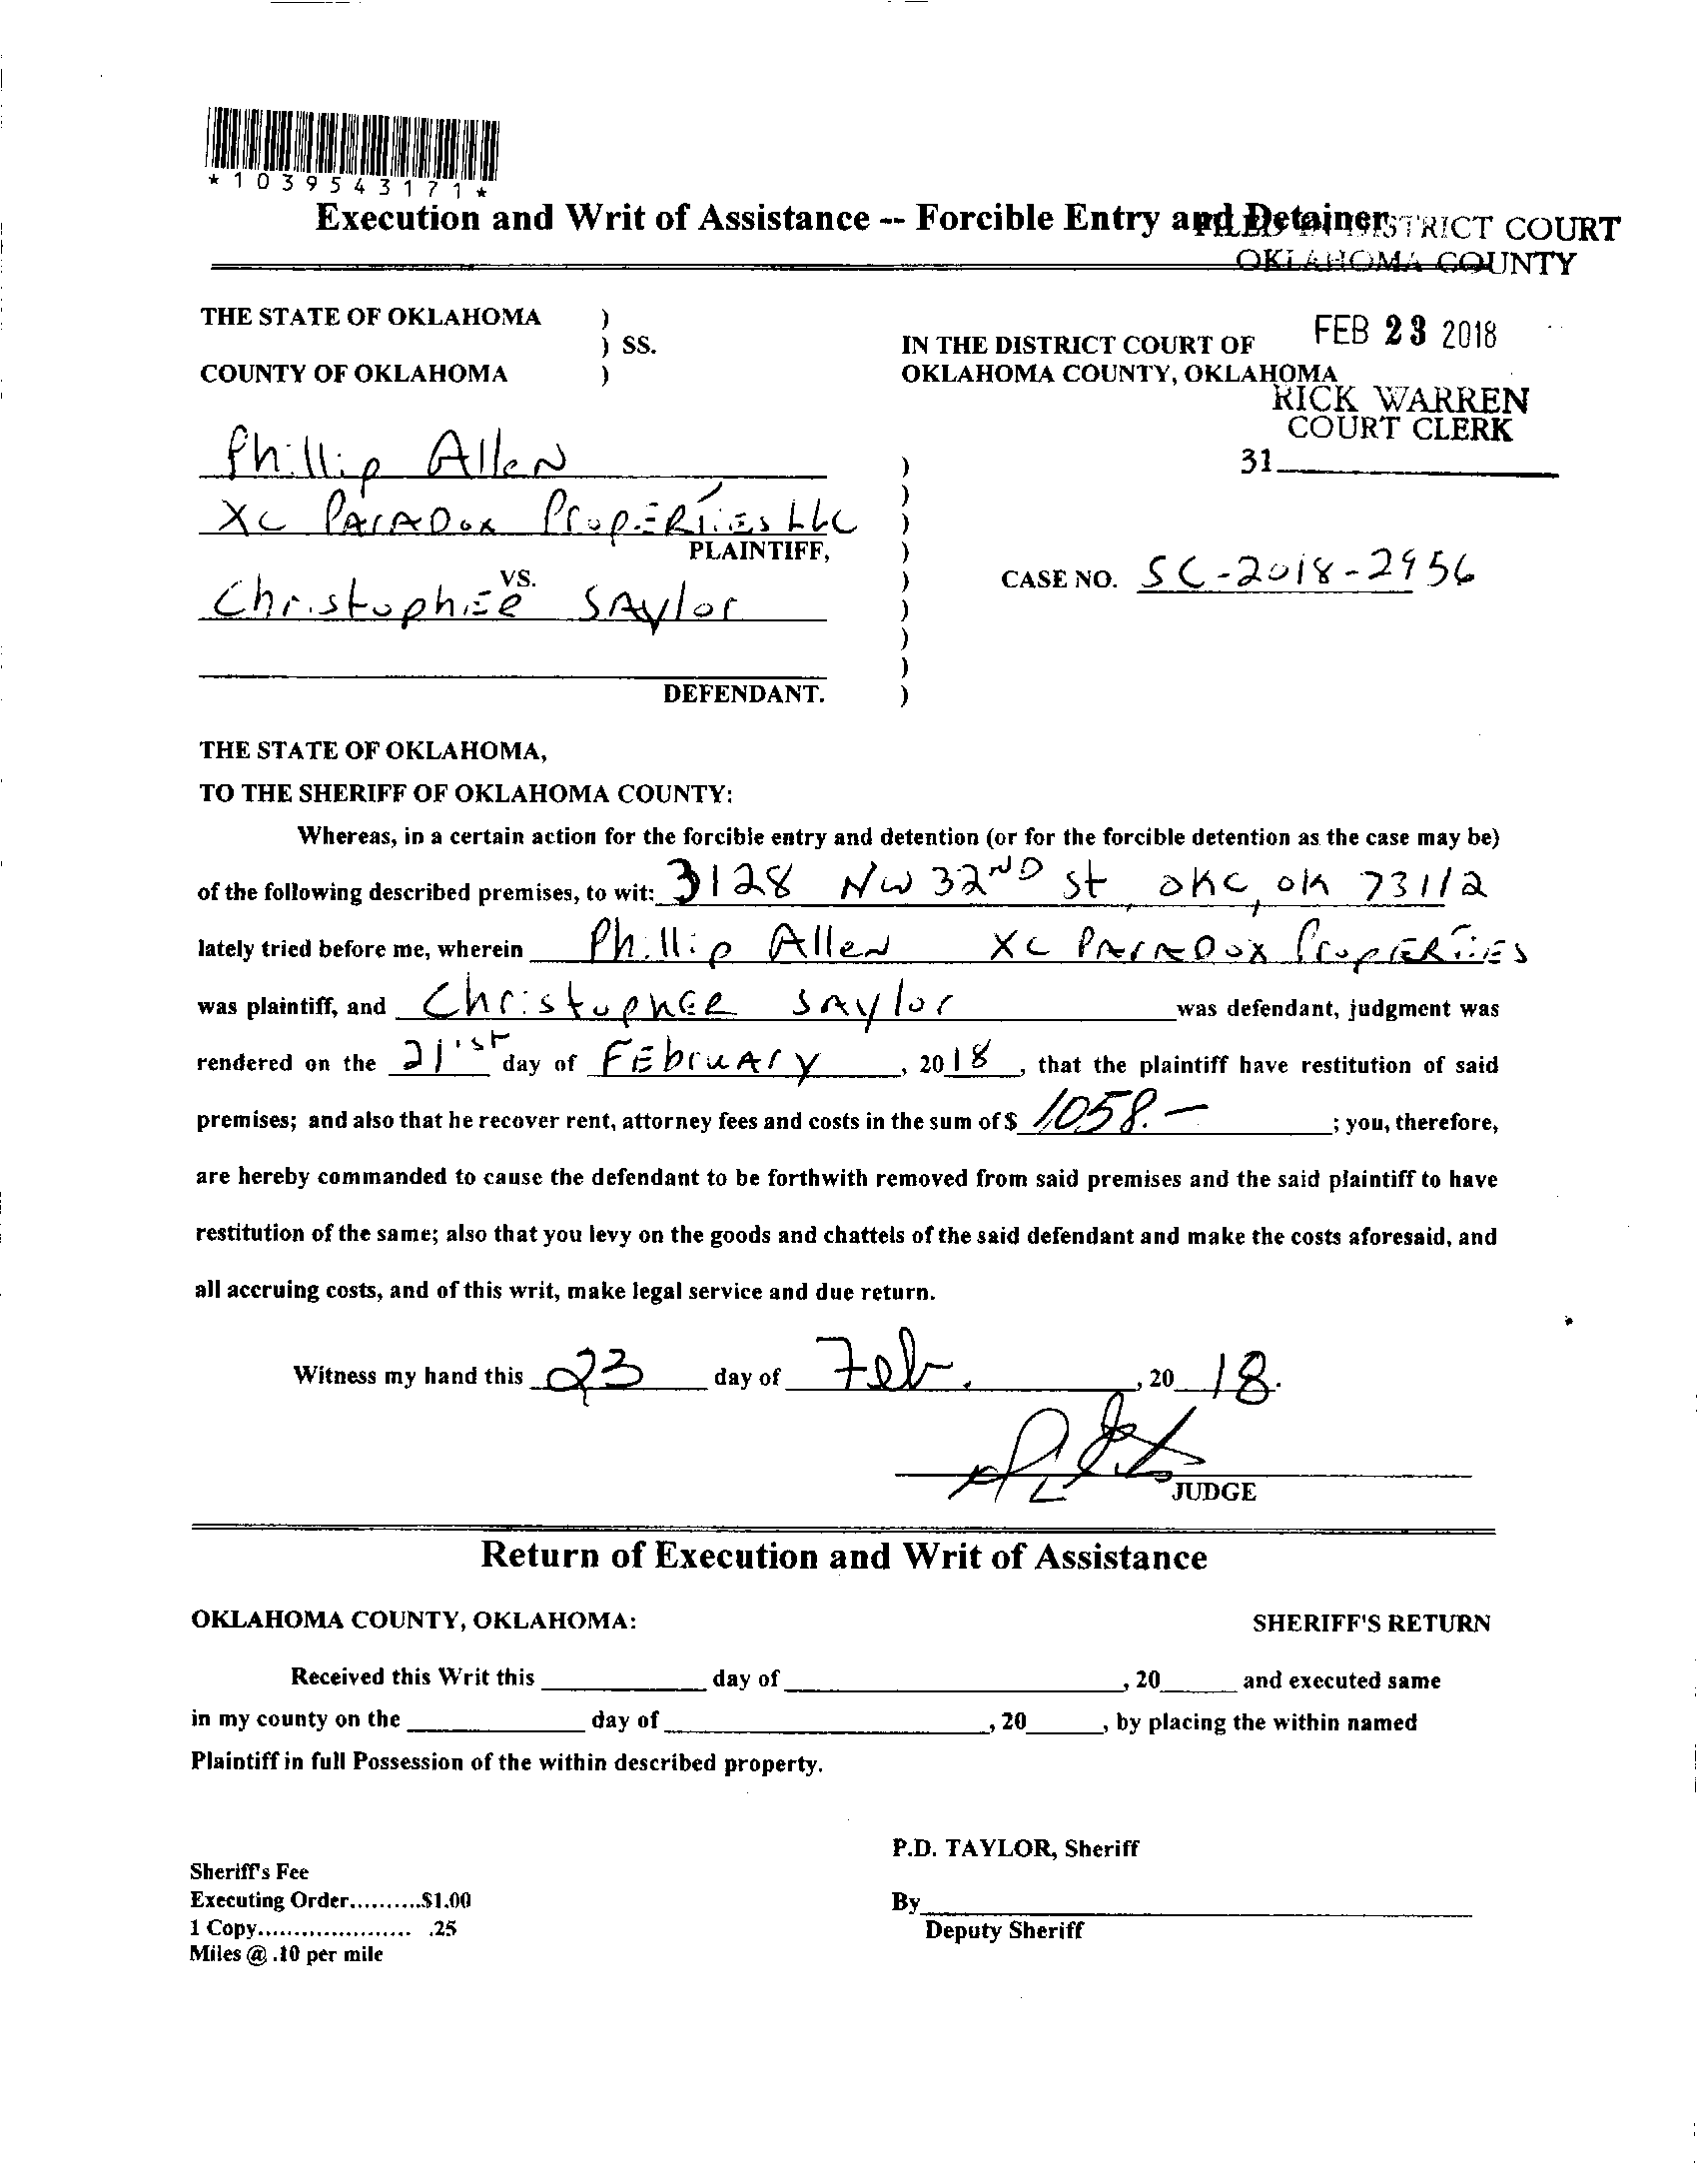 *1039543171*
Execution and Writ of Assistance -- Forcible Entry and Detainer
FILED IN DISTRICT COURT
OKLAHOMA COUNTY
THE STATE OF OKLAHOMA )
) SS.
COUNTY OF OKLAHOMA )
IN THE DISTRICT COURT OF
OKLAHOMA COUNTY, OKLAHOMA
FEB 23 2018
RICK WARREN
COURT CLERK
31
Phillip Allen )
XC Paradox Properties LLC )
PLAINTIFF, )
VS.
Christopher Saylor )
CASE NO. SC-2018-2956
DEFENDANT. )
THE STATE OF OKLAHOMA,
TO THE SHERIFF OF OKLAHOMA COUNTY:
Whereas, in a certain action for the forcible entry and detention (or for the forcible detention as the case may be)
of the following described premises, to wit: 3128 NW 32ND St, OKC, OK 73112
lately tried before me, wherein Phillip Allen XC Paradox Properties
was plaintiff, and Christopher Saylor was defendant, judgment was
rendered on the 21st day of February, 2018, that the plaintiff have restitution of said
premises; and also that he recover rent, attorney fees and costs in the sum of $ 1058.— ; you, therefore,
are hereby commanded to cause the defendant to be forthwith removed from said premises and the said plaintiff to have
restitution of the same; also that you levy on the goods and chattels of the said defendant and make the costs aforesaid, and
all accruing costs, and of this writ, make legal service and due return.
Witness my hand this 23 day of Feb., 20 18.
JUDGE
Return of Execution and Writ of Assistance
OKLAHOMA COUNTY, OKLAHOMA: SHERIFF'S RETURN
Received this Writ this ______ day of ______, 20____ and executed same
in my county on the ______ day of ______, 20____, by placing the within named
Plaintiff in full Possession of the within described property.
P.D. TAYLOR, Sheriff
Sheriff's Fee
Executing Order..........$1.00
1 Copy..................... .25
Miles @ .10 per mile
By______
Deputy Sheriff